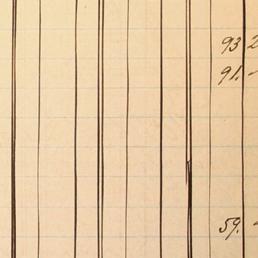 93 2
91. –
59. –